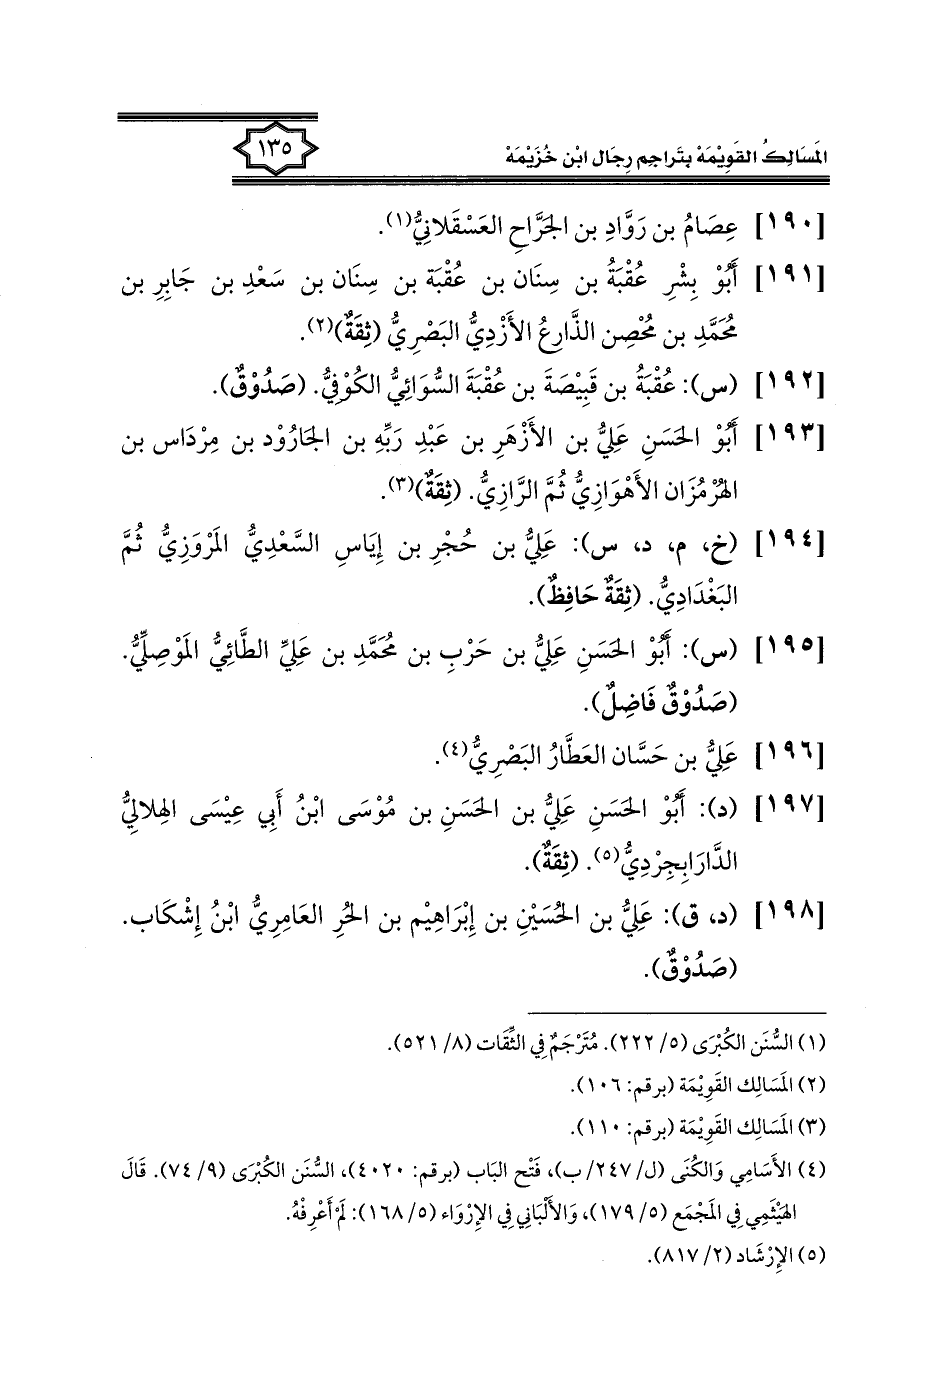 المَسَالِكُ القَوِيْمَهْ بِتَراجم رِجَال ابْن خُزَيْمَهْ
١٣٥
[١٩٠] عِصَامُ بن رَوَّادِ بن الجَرَّاحِ العَسْقَلانِيُّ(١).
[١٩١] أَبُوْ بِشْرِ عُقْبَةُ بن سِنَان بن عُقْبَة بن سِنَان بن سَعْدِ بن جَابِرِ بن
مُحَمَّدِ بن مُحْصِن الذَّارعُ الأَزْدِيُّ البَصْرِيُّ (ثِقَةٌ)(٢).
[١٩٢] (س): عُقْبَةُ بن قَبِيْصَةَ بن عُقْبَةَ السُّوَائِيُّ الكُوْفِيُّ. (صَدُوْقٌ).
[١٩٣] أَبُوْ الحَسَنِ عَلِيُّ بن الأَزْهَرِ بن عَبْدِ رَبِّهِ بن الجَارُوْد بن مِرْدَاس بن
الهُرْمُزَان الأَهْوَازِيُّ ثُمَّ الرَّازِيُّ. (ثِقَةٌ)(٣).
[١٩٤] (خ، م، د، س): عَلِيُّ بن حُجْرِ بن إِيَاسِ السَّعْدِيُّ المَرْوَزِيُّ ثُمَّ
البَغْدَادِيُّ. (ثِقَةٌ حَافِظٌ).
[١٩٥] (س): أَبُوْ الحَسَنِ عَلِيُّ بن حَرْبِ بن مُحَمَّدِ بن عَلِيِّ الطَّائِيُّ المَوْصِلِّيُّ.
(صَدُوْقٌ فَاضِلٌ).
[١٩٦] عَلِيُّ بن حَسَّان العَطَّارُ البَصْرِيُّ(٤).
[١٩٧] (د): أَبُوْ الحَسَنِ عَلِيُّ بن الحَسَنِ بن مُوْسَى ابْنُ أَبِي عِيْسَى الهِلالِيُّ
الدَّارَابِجِرْدِيُّ(٥). (ثِقَةٌ).
[١٩٨] (د، ق): عَلِيُّ بن الحُسَيْنِ بن إِبْرَاهِيْم بن الحُرِ العَامِرِيُّ ابْنُ إِشْكَاب.
(صَدُوْقٌ).
(١) السُّنَن الكُبْرَى (٥/ ٢٢٢). مُتَرْجَمٌ فِي الثِّقَات (٨/ ٥٢١).
(٢) المَسَالِك القَوِيْمَة (برقم: ١٠٦).
(٣) المَسَالِك القَوِيْمَة (برقم: ١١٠).
(٤) الأَسَامِي وَالكُنَى (ل/ ٢٤٧/ ب)، فَتْح البَاب (برقم: ٤٠٢٠)، السُّنَن الكُبْرَى (٩/ ٧٤). قَالَ
الهَيْثَمِي فِي المَجْمَع (٥/ ١٧٩)، وَالأَلْبَانِي فِي الإِرْوَاء (٥/ ١٦٨): لَمْ أَعْرِفْهُ.
(٥) الإِرْشَاد (٢/ ٨١٧).